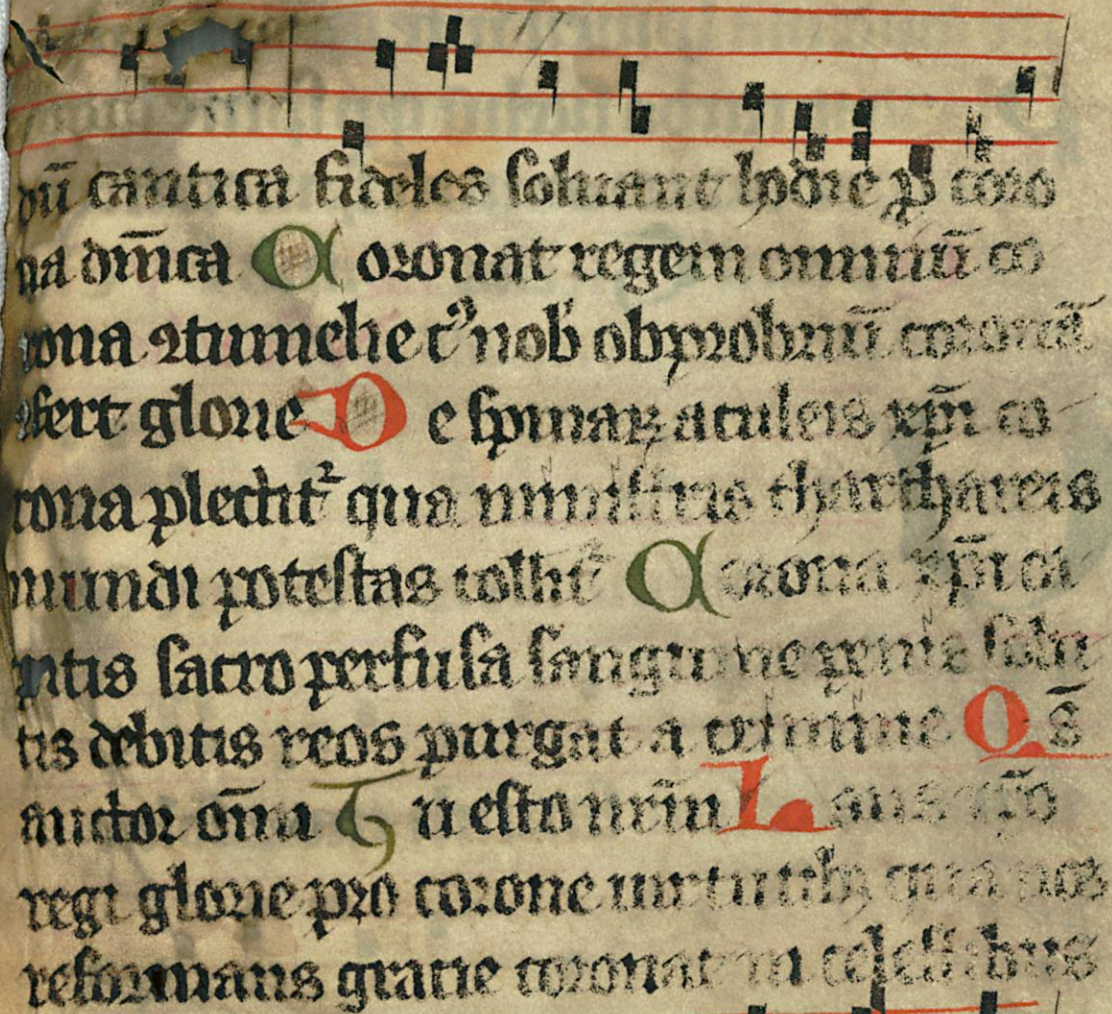 dū cantica fideles soluant hodie ꝑ coro
na dn̄ica Coronat regem omniū co
rona ꝯtumelie cꝰ nob obprobriū coronā
ꝯfert glorie De spinaꝝ aculeis xp̄i co
rona plectitᷣ qua ministris tharthareis
mundi potestas tollitᷣ Corona xp̄i ca
pitis sacro perfusa sanguine penis solu
tis debitis reos purgat a crimine Qs̄
auctor om̄i Tu esto nr̄m Laus xp̄o
regi glorie pro corone uirtutibꝫ qua nos
reformans gratie coronat in celestibus